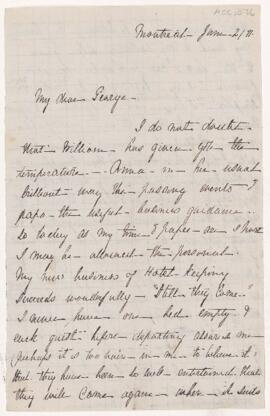 ACC 1576
Montreal - June - 2/
My dear George -
I do not doubt
that William - has given you the
temperature - Anna - in her usual
brilliant way the passing events - &
papa the useful business guidance.
So today as my time & paper - are
I may as the personal.
My new business of Hotel-Keeping
Succeeds wonderfully - "Still they Come" -
I never have one bed empty. I
each guest before departing assures me -
(perhaps it is too vain - in - me to believe it)
that they have been so well entertained that
they will Come again - when it suits